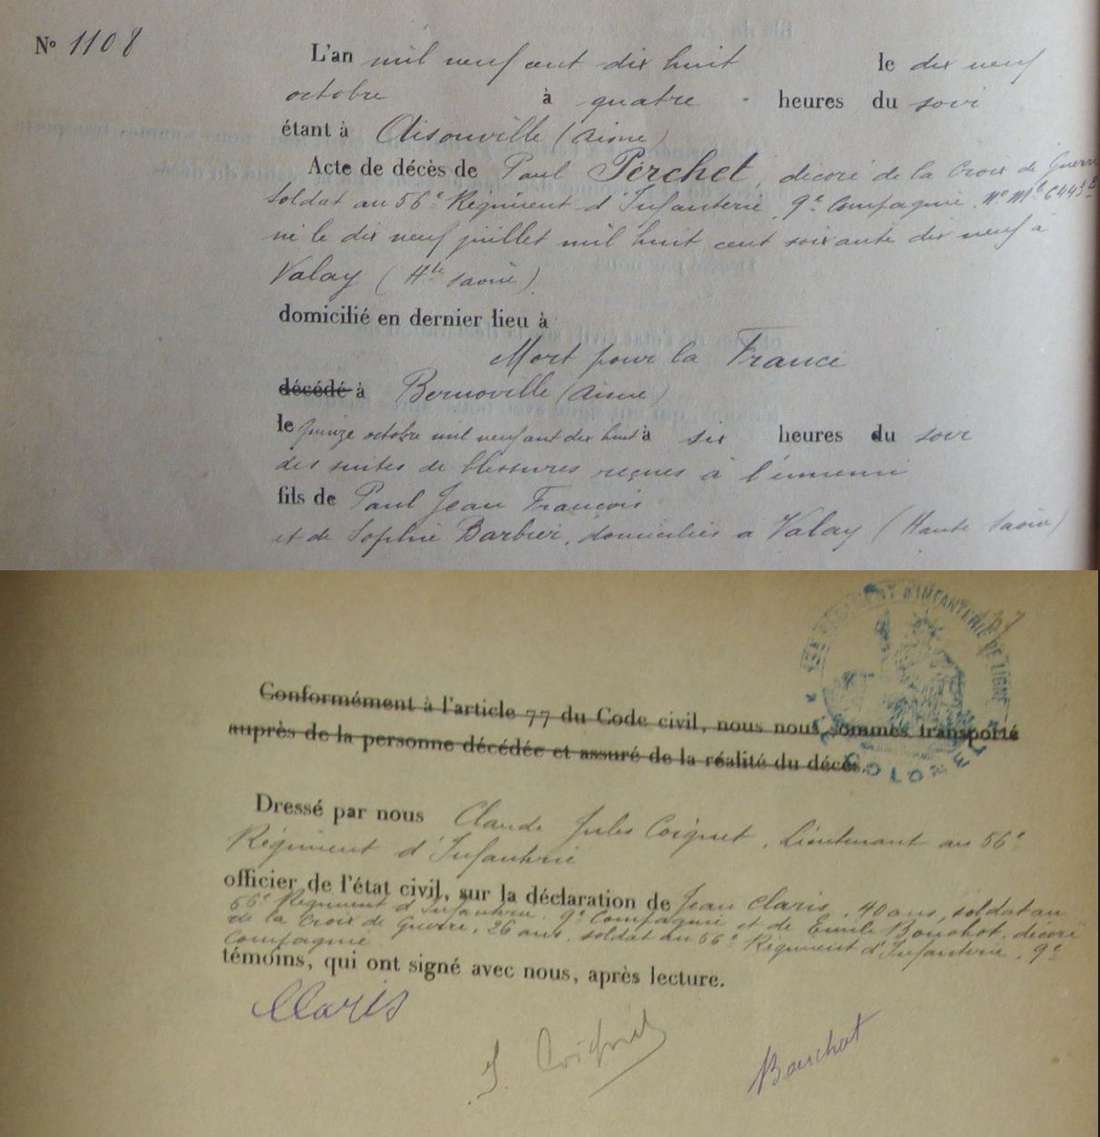 N° 1108
L'an mil neuf cent dix huit le dix neuf
octobre à quatre heures du soir
étant à Aisonville (Aisne)
Acte de décès de Paul Perchet, décoré de la Croix de Guerre
soldat au 56e Régiment d'Infanterie, 9e Compagnie, N° Mle
né le dix neuf juillet mil huit cent soixante dix neuf à
Valay (Hte Saône)
domicilié en dernier lieu à
Mort pour la France
décédé à Bernoville (Aisne)
le quinze octobre mil neuf cent dix huit à six heures du soir
des suites de blessures reçues à l'ennemi
fils de Paul Jean François
et de Sophie Barbier, domiciliés à Valay (Haute Saône)
RÉGIMENT D'INFANTERIE DE LIGNE
LE COLONEL
Conformément à l'article 77 du Code civil, nous nous sommes transporté
auprès de la personne décédée et assuré de la réalité du décès.
Dressé par nous Claude Jules Coignet, Lieutenant au 56e
Régiment d'Infanterie
officier de l'état civil, sur la déclaration de Jean Claris, 40 ans, soldat au
56e Régiment d'Infanterie, 9e Compagnie et de Emile Bouchot, décoré
de la Croix de Guerre, 26 ans, soldat au 56e Régiment d'Infanterie, 9e
Compagnie
témoins, qui ont signé avec nous, après lecture.
Claris
J. Coignet
Bouchot